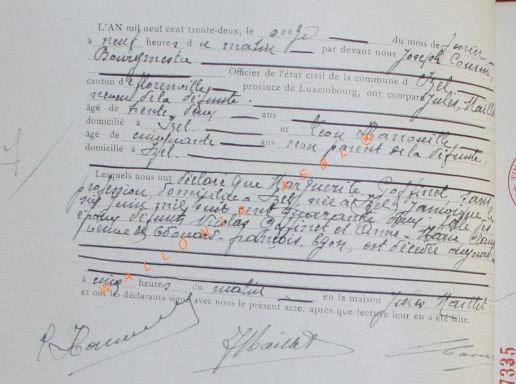 L'AN mil neuf cent trente-deux, le onze du mois de
à neuf heures du matin par devant nous Joseph
Bourgmestre
Officier de l'état civil de la commune d'Izel
canton de Florenville, province de Luxembourg, ont comparu Jules Maillet
neveu de la défunte
âgé de trente ans
domicilié à Izel et Léon
âgé de cinquante ans non parent de la défunte.
domicilié à Izel.
Lesquels nous ont déclaré que Marguerite Goffinet, sans
profession, domiciliée à Izel, née à Izel, Jamoigne, le
juin mil huit cent quarante deux, fille des
époux défunts Nicolas Goffinet et Anne Marie
de Edouard François, est décédée aujourd'hui
à cinq heures du matin en la maison Jules Maillet.
et ont les déclarants signé avec nous le présent acte, après que lecture leur en a été faite.
J Maillet
WALLONIE
7335